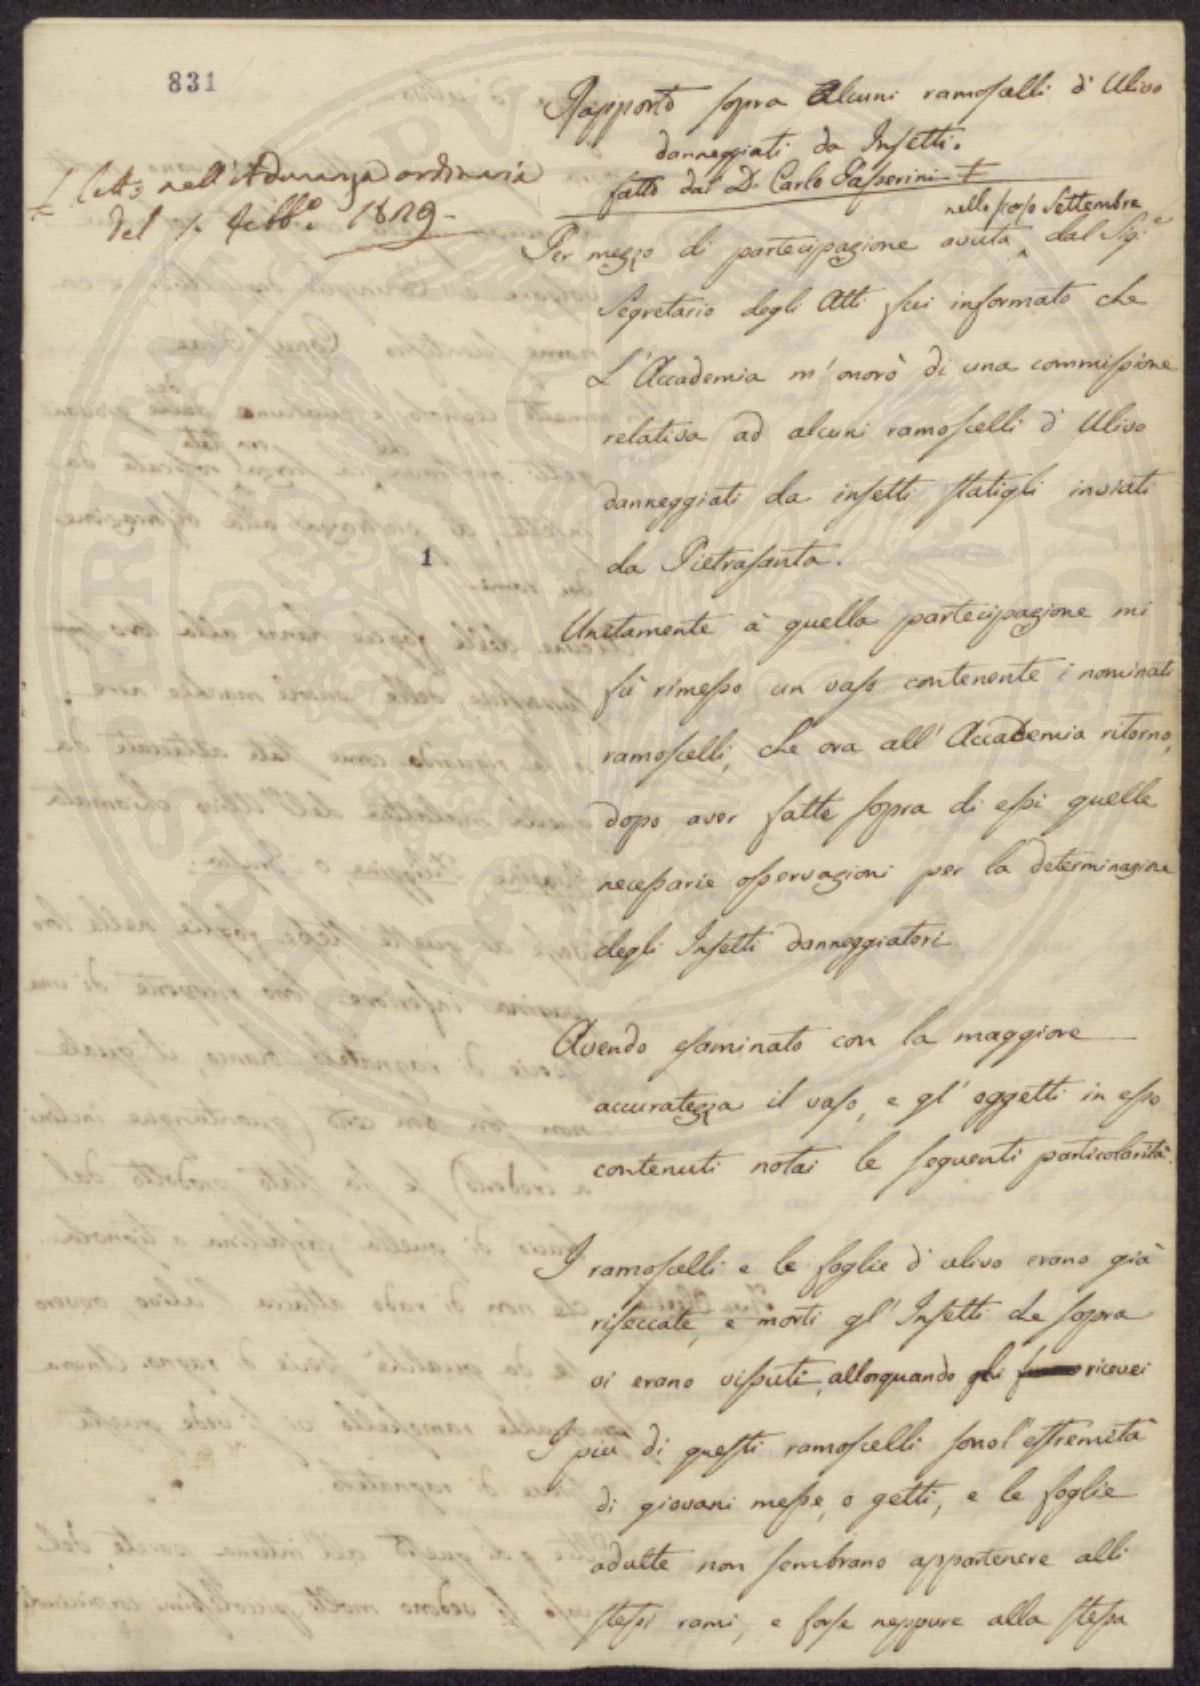 831
Rapporto sopra Alcuni ramoscelli d'Ulivo
danneggiati da Insetti.
fatto dal D. Carlo Passerini ‡
‡ letto nell'Adunanza ordinaria
del 1. Febb.o 1829
nello scorso Settembre
Per mezzo di partecipazione avuta ^ dal Sig.e
Segretario degli Atti fui informato che
L'Accademia m'onorò di una commissione
relativa ad alcuni ramoscelli d'Ulivo
danneggiati da insetti statigli inviati
da Pietrasanta.
1
Unitamente à quella partecipazione mi
fù rimesso un vaso contenente i nominati
ramoscelli, che ora all'Accademia ritorno,
dopo aver fatte sopra di essi quelle
necessarie osservazioni per la determinazione
degli Insetti danneggiatori
Avendo esaminato con la maggiore
accuratezza il vaso, e gl'oggetti in esso
contenuti notai le seguenti particolarità.
I ramoscelli e le foglie d'ulivo erano già
riseccate, e morti gl'Insetti che sopra
vi erano vissuti, allorquando gli ricevei
I più di questi ramoscelli sono l'estremità
di giovani messe, o getti, e le foglie
adulte non sembrano appartenere alli
stessi rami, e forse neppure alla stessa